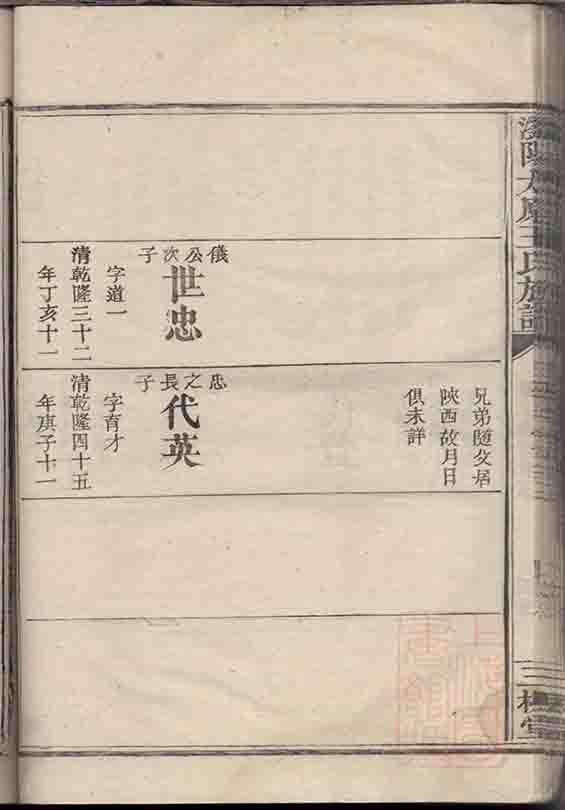 王氏族譜
三
兄弟隨父居
陝西故月日
俱未詳
儀公次子
世忠
字道一
清乾隆三十二
年丁亥十一
忠之長子
代英
字育才
清乾隆四十五
年庚子十一